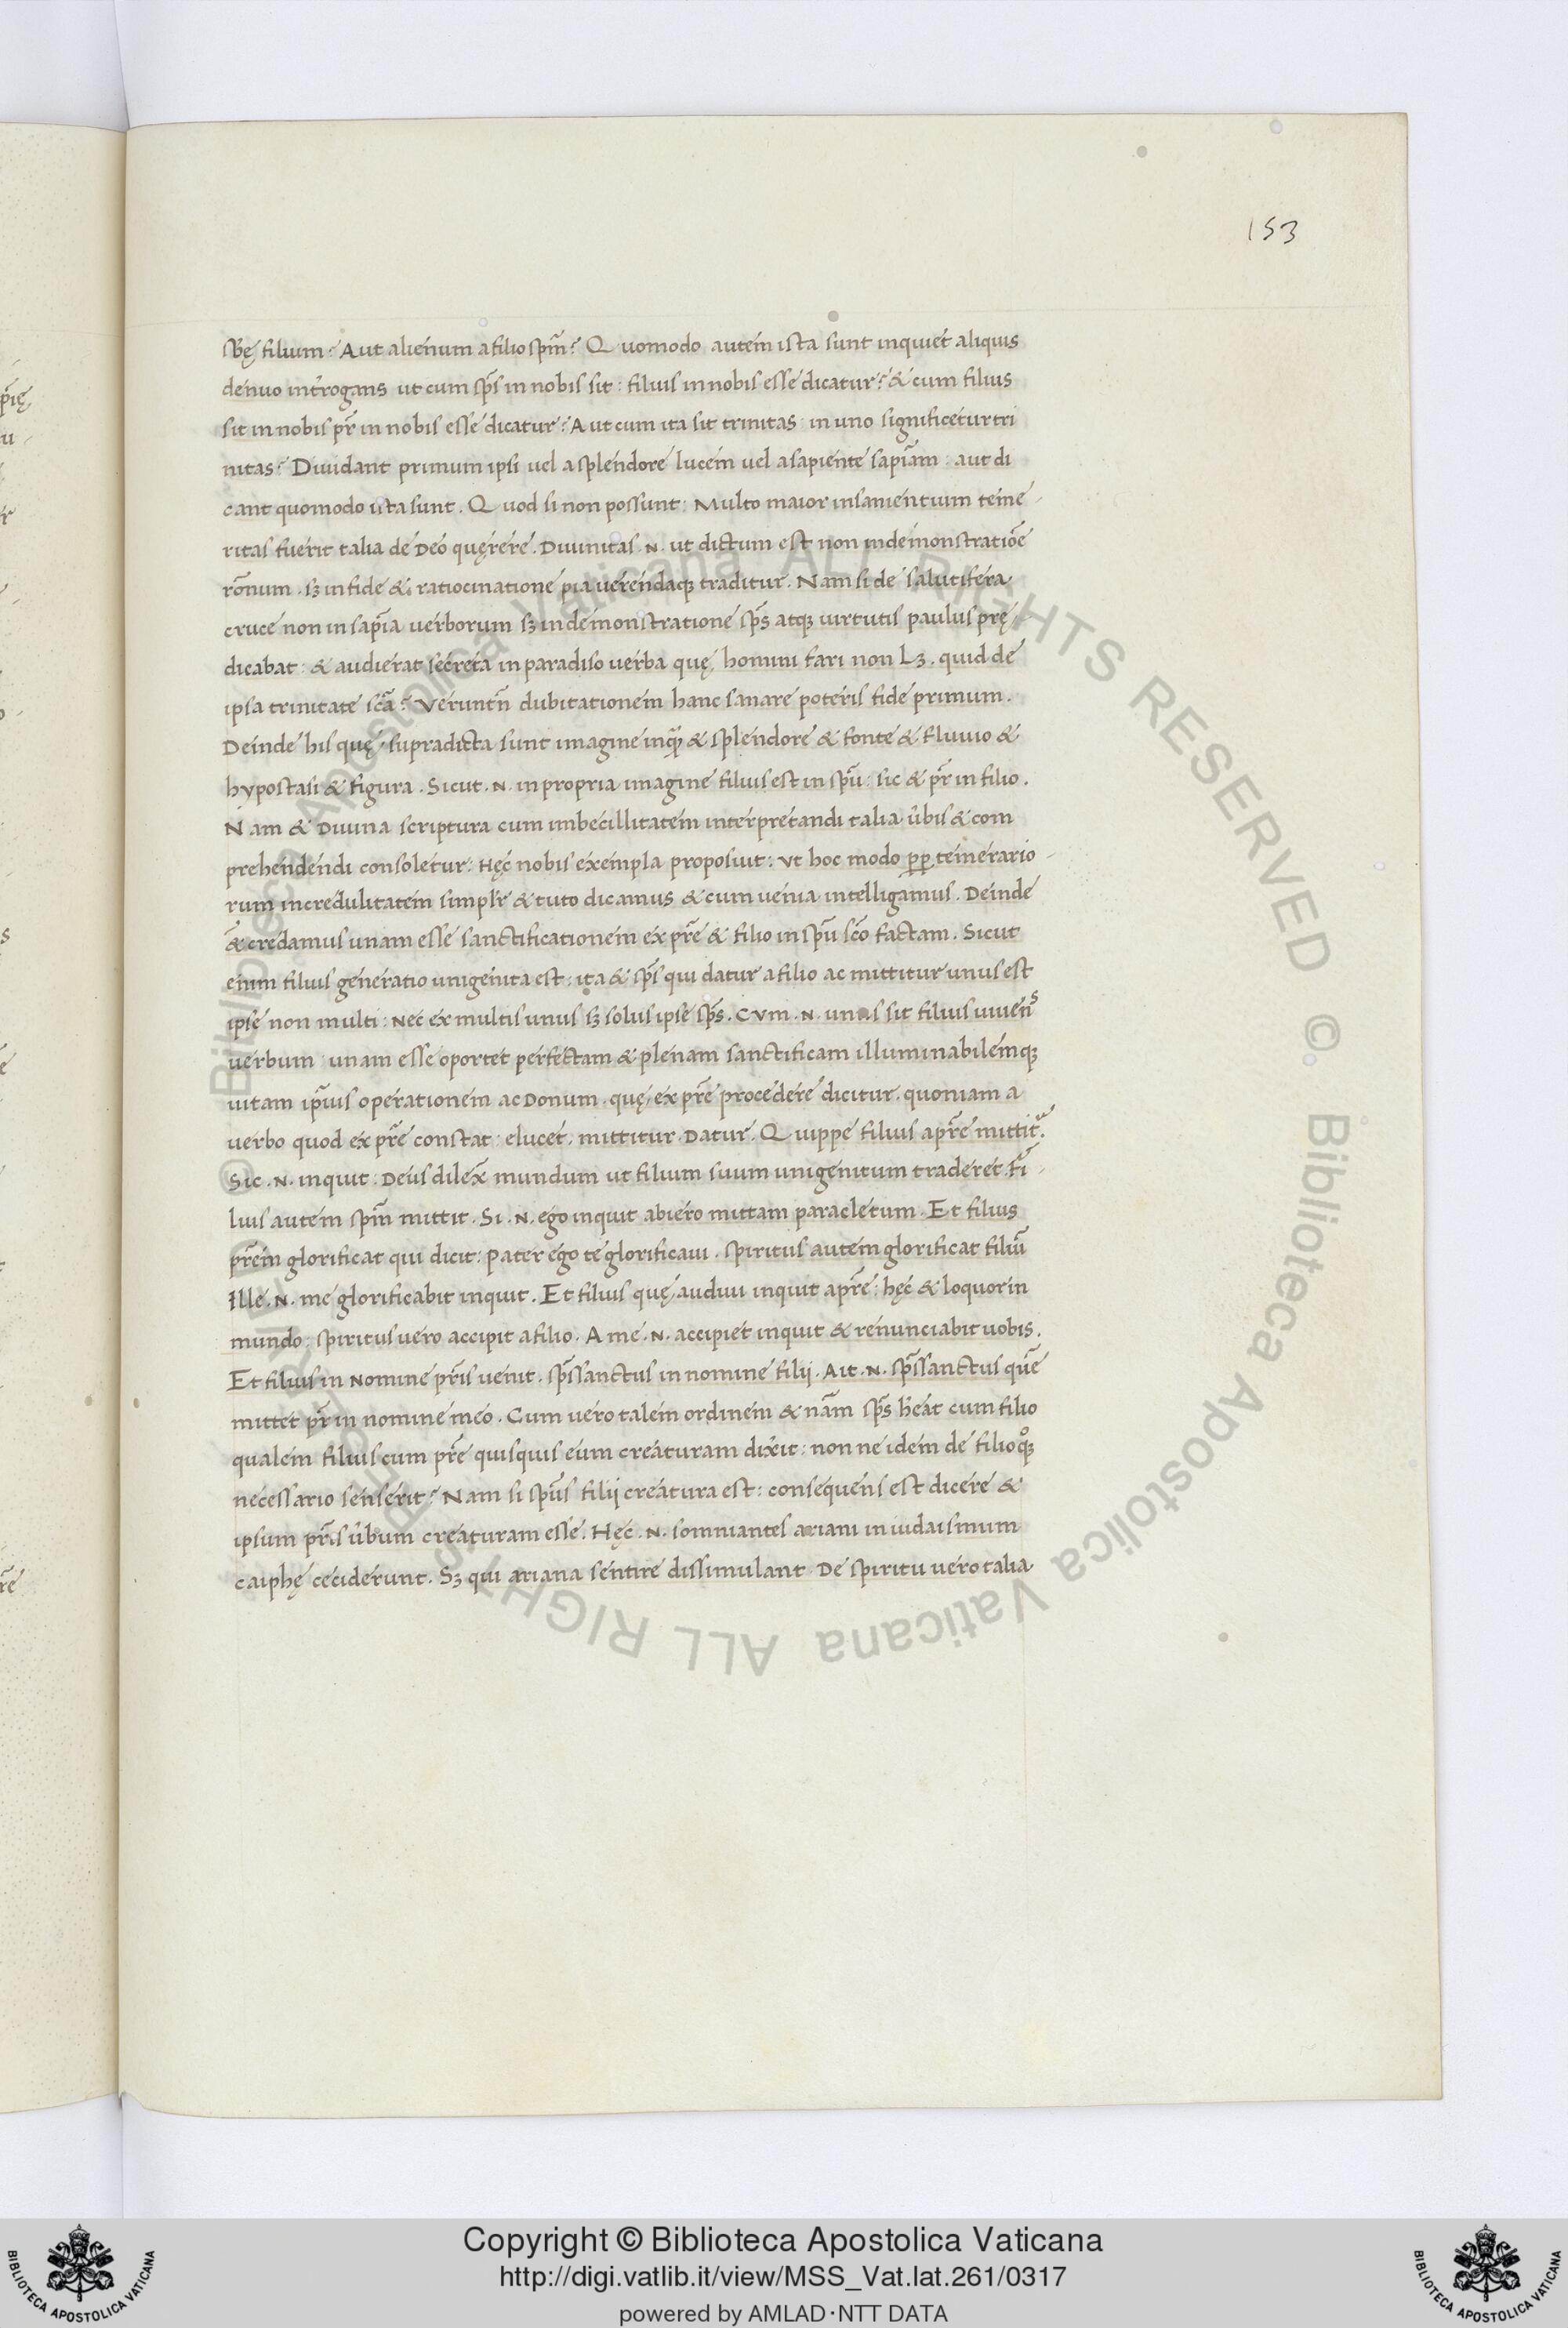 153
sbę filium? Aut alienum a filio spm̃? Quomodo autem ista sunt inquiet aliquis
denuo int̃rogans ut cum sp̃s in nobis sit: filius in nobis esse dicatur? & cum filius
sit in nobis pr̃ in nobis esse dicatur? Aut cum ita sit trinitas in uno significetur tri
nitas? Diuidant primum ipsi uel a splendore lucem uel a sapiente sapiãm: aut di
cant quomodo ista sunt. Quod si non possunt: Multo maior insanientium teme-
ritas fuerit talia de Deo quęrere. Diuinitas .N. ut dictum est non in demonstratiõe
rõnum. sꝫ in fide & ratiocinatione pia uerendaqꝫ traditur. Nam si de salutifera
cruce non in sapĩa uerborum sꝫ in demonstratione sp̃s atqꝫ uirtutis paulus prę-
dicabat: & audierat secreta in paradiso uerba quę homini fari non Lꝫ. quid de
ipsa trinitate scã? Veruntñ dubitationem hanc sanare poteris fide primum.
Deinde his quę supradicta sunt imagine inq̃ & splendore & fonte & fluuio &
hypostasi & figura. Sicut .N. in propria imagine filius est in spũ: sic & pr̃ in filio.
Nam & Diuina scriptura cum imbecillitatem interpretandi talia ũbis & com
prehendendi consoletur: Hęc nobis exempla proposuit: Vt hoc modo ꝑꝑ temerario-
rum incredulitatem simplr̃ & tuto dicamus & cum uenia intelligamus. Deinde
& credamus unam esse sanctificationem ex prẽ & filio in spũ scõ factam. Sicut
enim filius generatio unigenita est: ita & sp̃s qui datur a filio ac mittitur unus est
ipse non multi: Nec ex multis unus sꝫ solus ipse sp̃s. Cum .N. unus sit filius uiuens
uerbum: unam esse oportet perfectam & plenam sanctificam illuminabilemqꝫ
uitam ip̃ius operationem ac Donum. quę ex prẽ procedere dicitur. quoniam a
uerbo quod ex prẽ constat: elucet. mittitur. Datur. Quippe filius a prẽ mittit̃.
Sic .N. inquit: Deus dilex̃ mundum ut filium suum unigenitum traderet. fi-
lius autem spm̃ mittit. Si .N. ego inquit abiero mittam paracletum. Et filius
prẽm glorificat qui dicit: Pater ego te glorificaui. Spiritus autem glorificat filiũ
Ille .N. me glorificabit inquit. Et filius quę audiui inquit a prẽ: hęc & loquor in
mundo: spiritus uero accipit a filio. A me .N. accipiet inquit & renunciabit uobis.
Et filius in Nomine pr̃is uenit. sp̃ssanctus in nomine filij. Ait .N. sp̃ssanctus quẽ
mittet pr̃ in nomine meo. Cum uero talem ordinem & nãm sp̃s h̃eat cum filio
qualem filius cum prẽ quisquis eum creaturam dixit: non ne idem de filio qͦꝫ
necessario senserit? Nam si spũs filij creatura est: consequens est dicere &
ipsum pr̃is ũbum creaturam esse. Hęc .N. somniantes ariani in iudaismum
caiphę ceciderunt. Sꝫ qui ariana sentire dissimulant. De spiritu uero talia
Copyright © Biblioteca Apostolica Vaticana
http://digi.vatlib.it/view/MSS_Vat.lat.261/0317
powered by AMLAD·NTT DATA